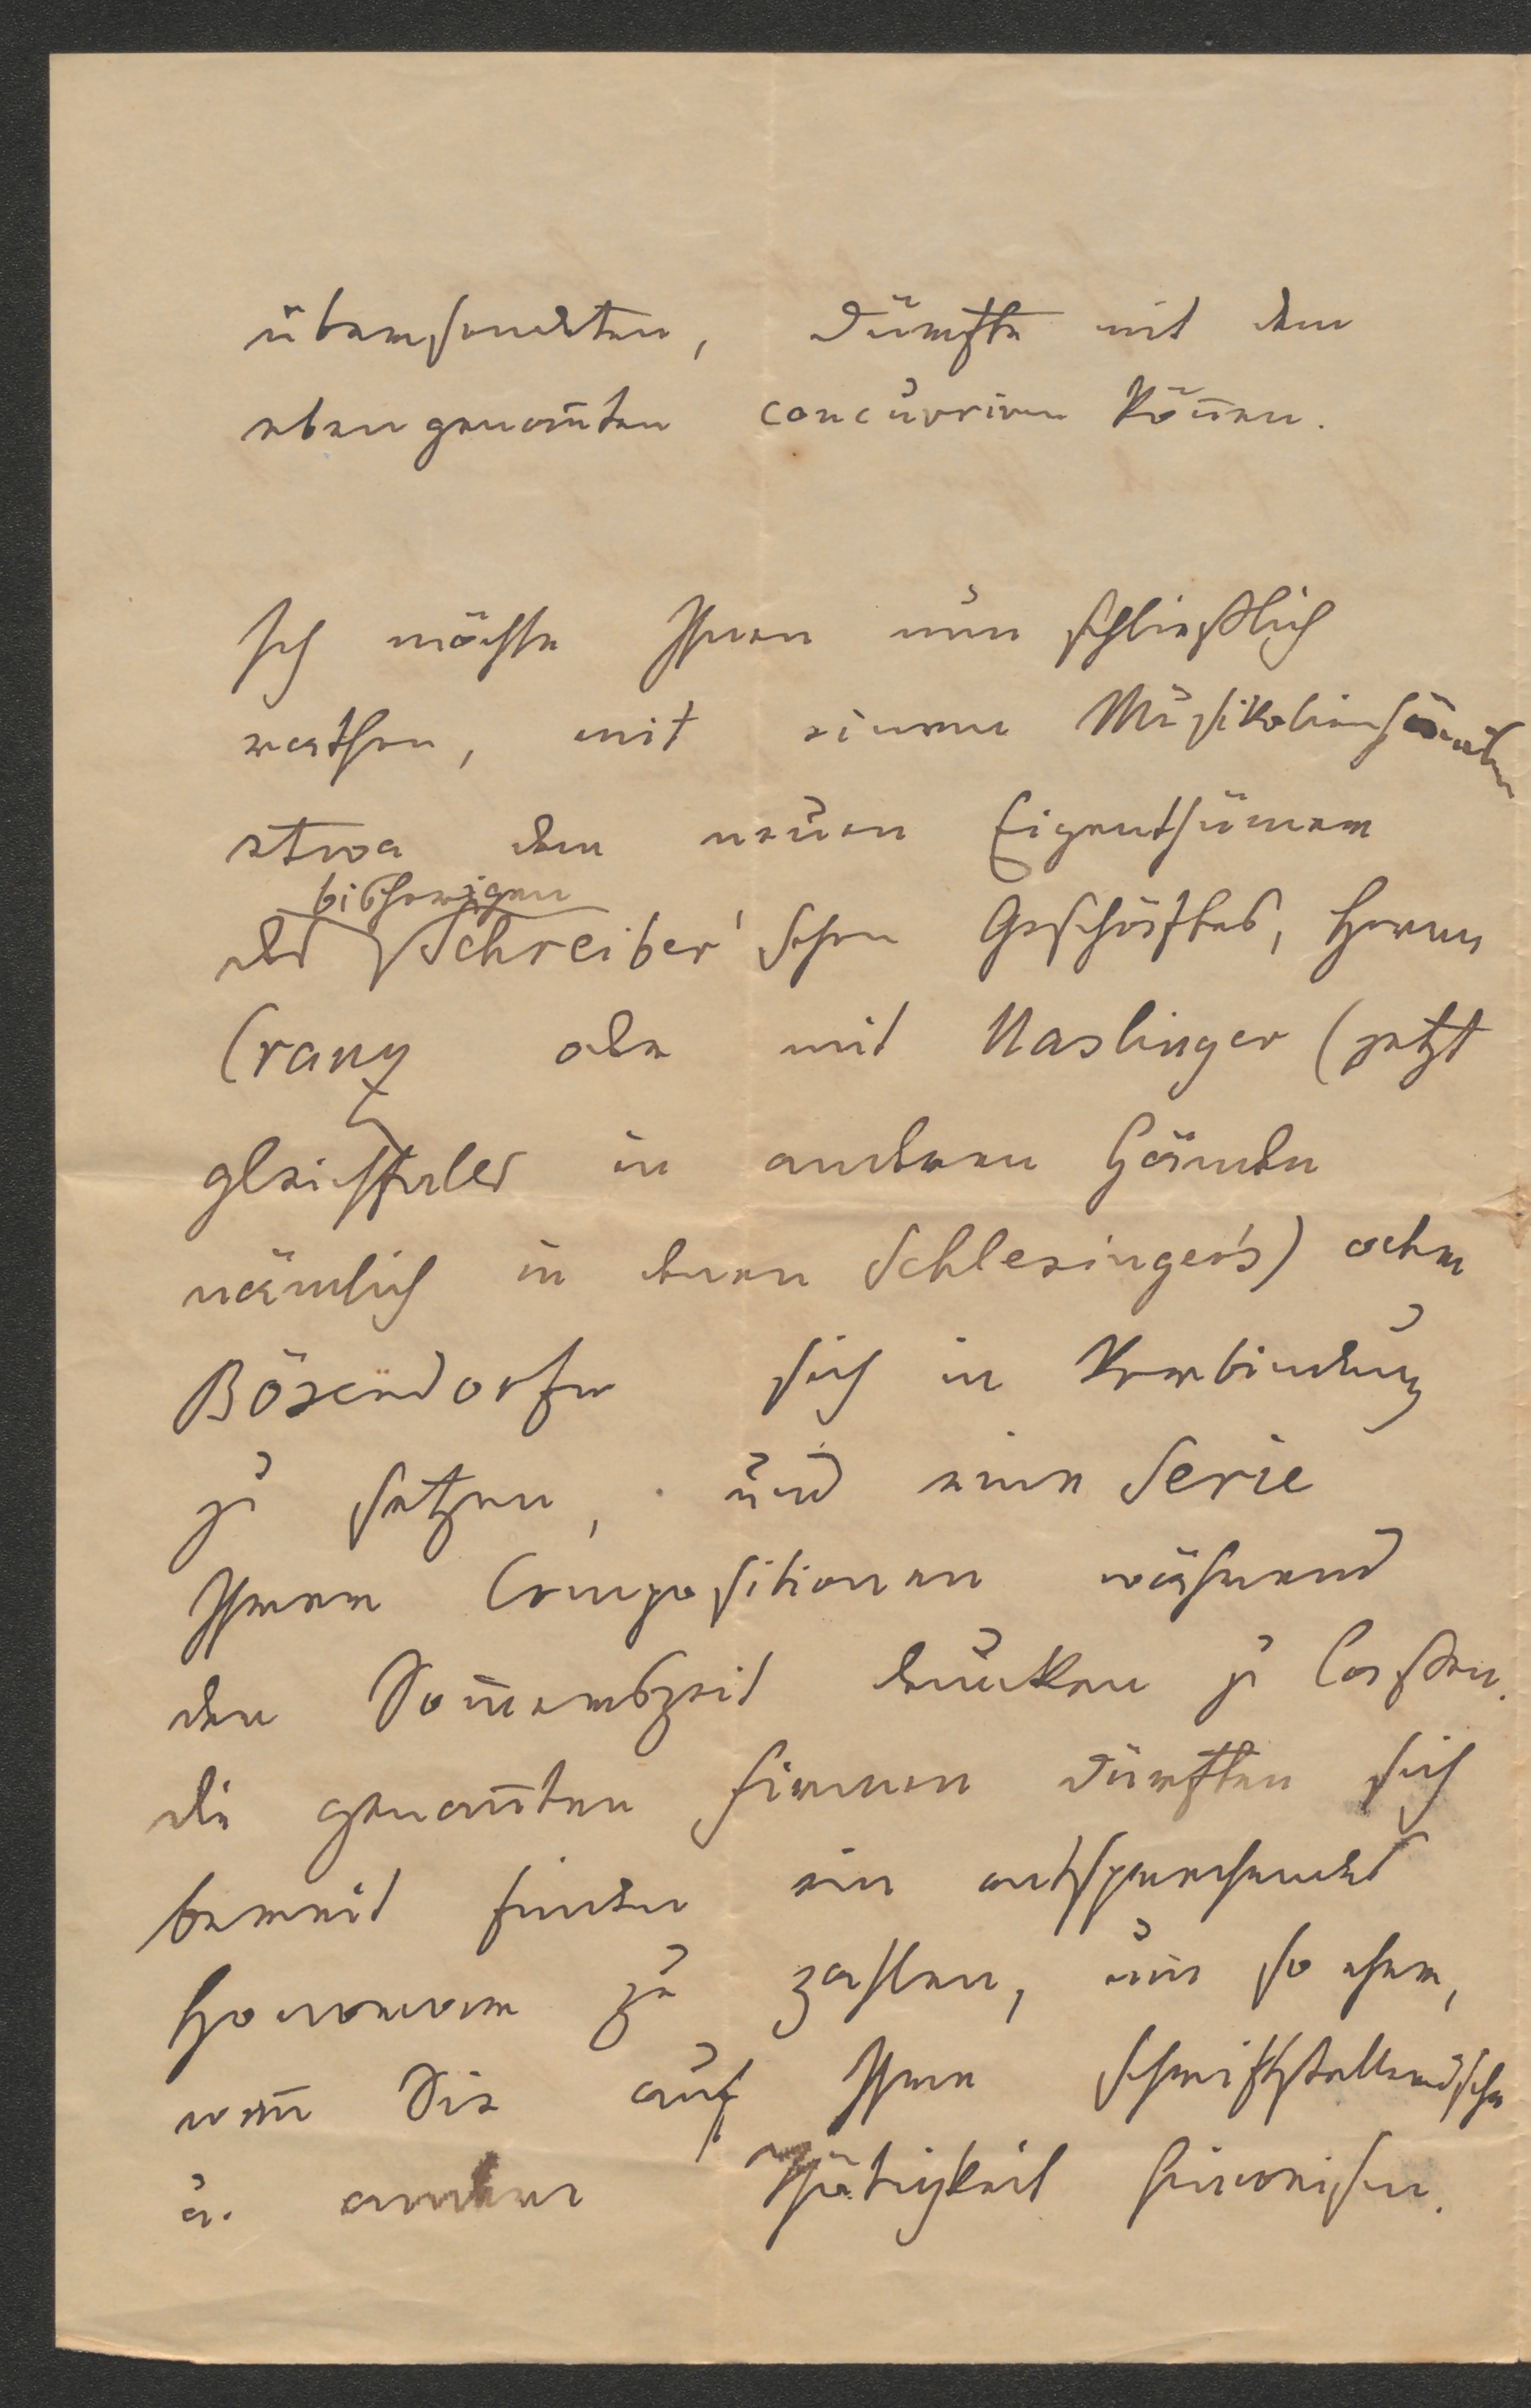 übersendeten, dürfte mit dem
ebengenañten concurriren köñen.
Ich möchte Ihnen nun schließlich
rathen, mit einem Musikalienhändler
etwa dem neuen Eigenthümer
bisherigen
des Schreiber'schen Geschäftes, Herrn
Cranz oder mit Haslinger (jetzt
gleichfalls in anderen Händen
nämlich in denen Schlesinger's) oder
Bösendorfer sich in Verbindung
zu setzen, und eine Serie
Ihrer Compositionen während
der Som̃erszeit drucken zu lassen.
die genañten Firmen dürften sich
bereit finden ein entsprechendes
Honorar zu zahlen, um so eher,
weñ Sie auf Ihre schriftstellerische
u. andere Thätigkeit hinweisen.